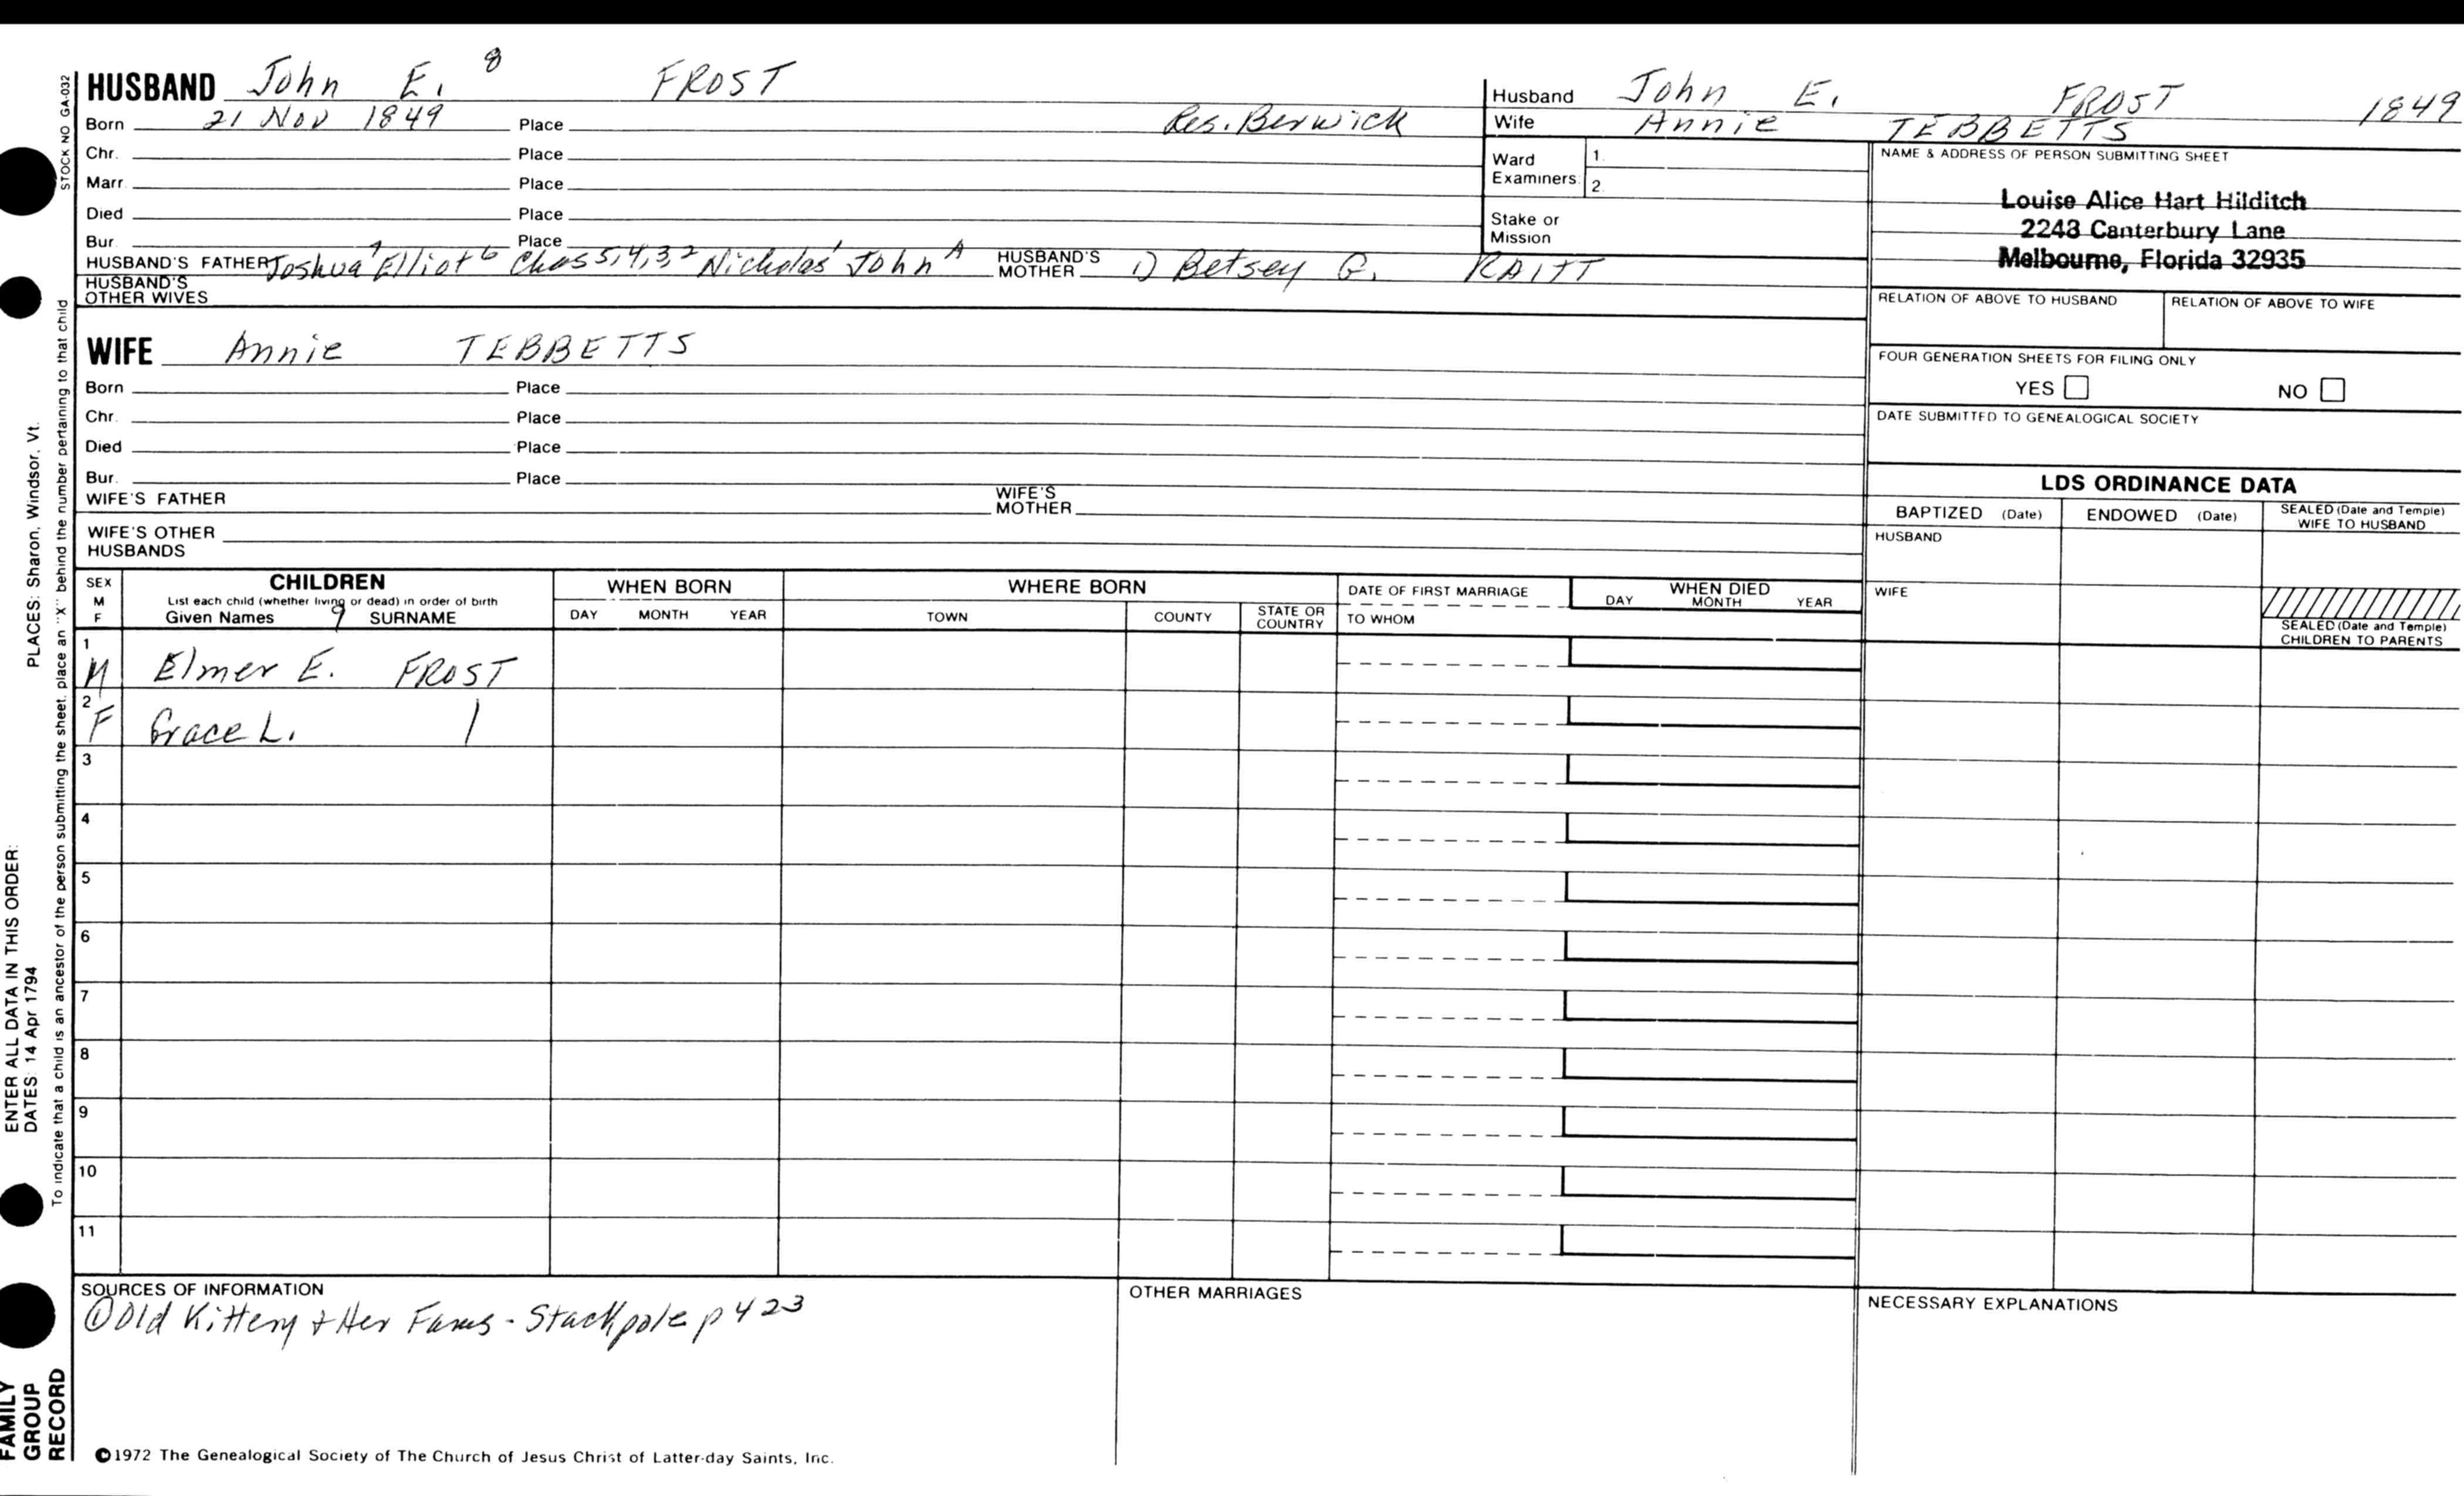 STOCK NO GA-032
HUSBAND John E. 8 FROST
Born 21 Nov 1849 Place Res. Berwick
Chr. Place
Marr. Place
Died Place
Bur. Place
HUSBAND'S FATHER Joshua 7 Elliot 6 Chas 5,4,3,2 Nicholas 1 John A HUSBAND'S MOTHER 1) Betsey G. RAITT
HUSBAND'S OTHER WIVES
WIFE Annie TEBBETTS
Born Place
Chr. Place
Died Place
Bur. Place
WIFE'S FATHER WIFE'S MOTHER
WIFE'S OTHER HUSBANDS
Husband John E. FROST 1849
Wife Annie TEBBETTS
Ward Examiners: 1. 2.
Stake or Mission
NAME & ADDRESS OF PERSON SUBMITTING SHEET
Louise Alice Hart Hilditch
2243 Canterbury Lane
Melbourne, Florida 32935
RELATION OF ABOVE TO HUSBAND RELATION OF ABOVE TO WIFE
FOUR GENERATION SHEETS FOR FILING ONLY
YES NO
DATE SUBMITTED TO GENEALOGICAL SOCIETY
LDS ORDINANCE DATA
BAPTIZED (Date) ENDOWED (Date) SEALED (Date and Temple) WIFE TO HUSBAND
HUSBAND
WIFE
SEALED (Date and Temple) CHILDREN TO PARENTS
SEX M F
CHILDREN
List each child (whether living or dead) in order of birth
Given Names 9 SURNAME
WHEN BORN
DAY MONTH YEAR
WHERE BORN
TOWN COUNTY STATE OR COUNTRY
DATE OF FIRST MARRIAGE
TO WHOM
WHEN DIED
DAY MONTH YEAR
1 M Elmer E. FROST
2 F Grace L. |
3
4
5
6
7
8
9
10
11
SOURCES OF INFORMATION
① Old Kittery & Her Fams - Stackpole p 423
OTHER MARRIAGES
NECESSARY EXPLANATIONS
©1972 The Genealogical Society of The Church of Jesus Christ of Latter-day Saints, Inc.
FAMILY GROUP RECORD
ENTER ALL DATA IN THIS ORDER:
DATES: 14 Apr 1794 PLACES: Sharon, Windsor, Vt.
To indicate that a child is an ancestor of the person submitting the sheet, place an "X" behind the number pertaining to that child